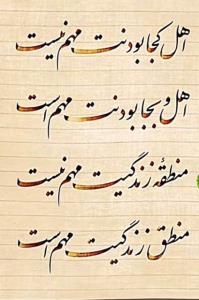 اهل کجا بودنت مهم نیست
اهل و بجا بودنت مهم است
منطقهٔ زندگیت مهم نیست
منطق زندگیت مهم است